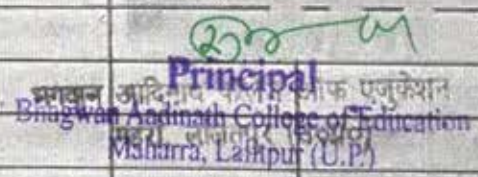 Principal
भगवान आदिनाथ कॉलेज ऑफ एजुकेशन
Bhagwan Aadinath College of Education
महर्रा, ललितपुर (उ०प्र०)
Maharra, Lalitpur (U.P.)